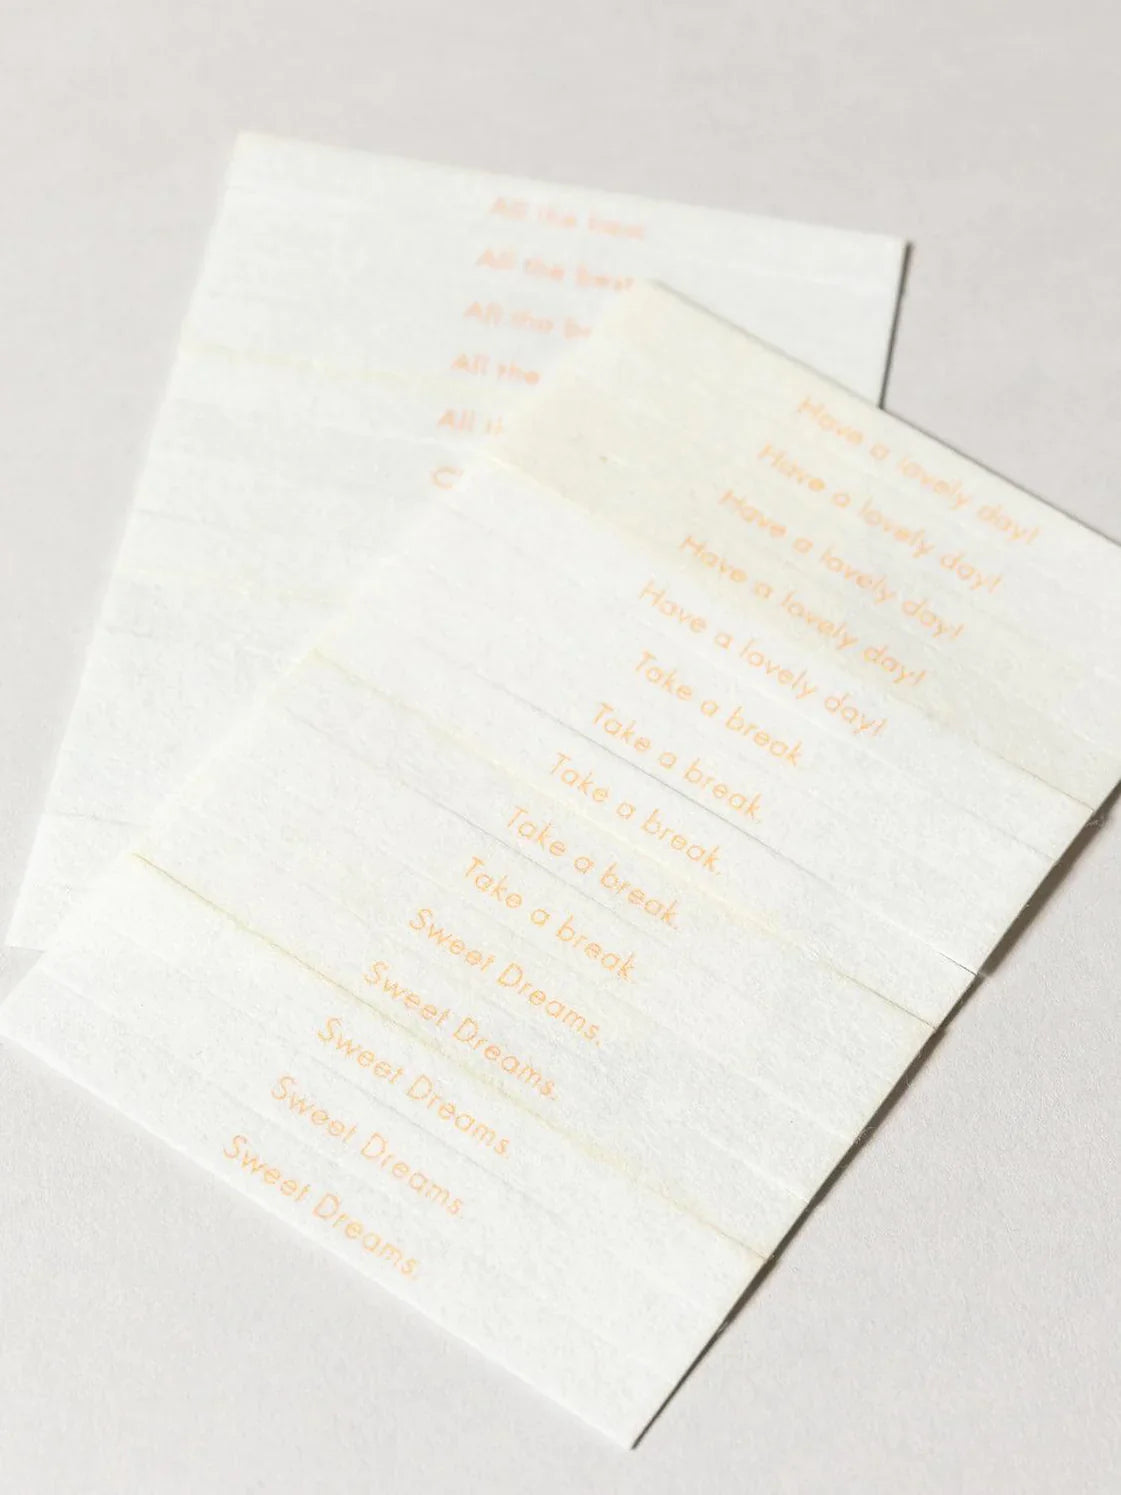 All the best
All the best
All the be
All the
All th
C
Have a lovely day!
Have a lovely day!
Have a lovely day!
Have a lovely day!
Have a lovely day!
Take a break.
Take a break.
Take a break.
Take a break.
Take a break.
Sweet Dreams.
Sweet Dreams.
Sweet Dreams.
Sweet Dreams.
Sweet Dreams.